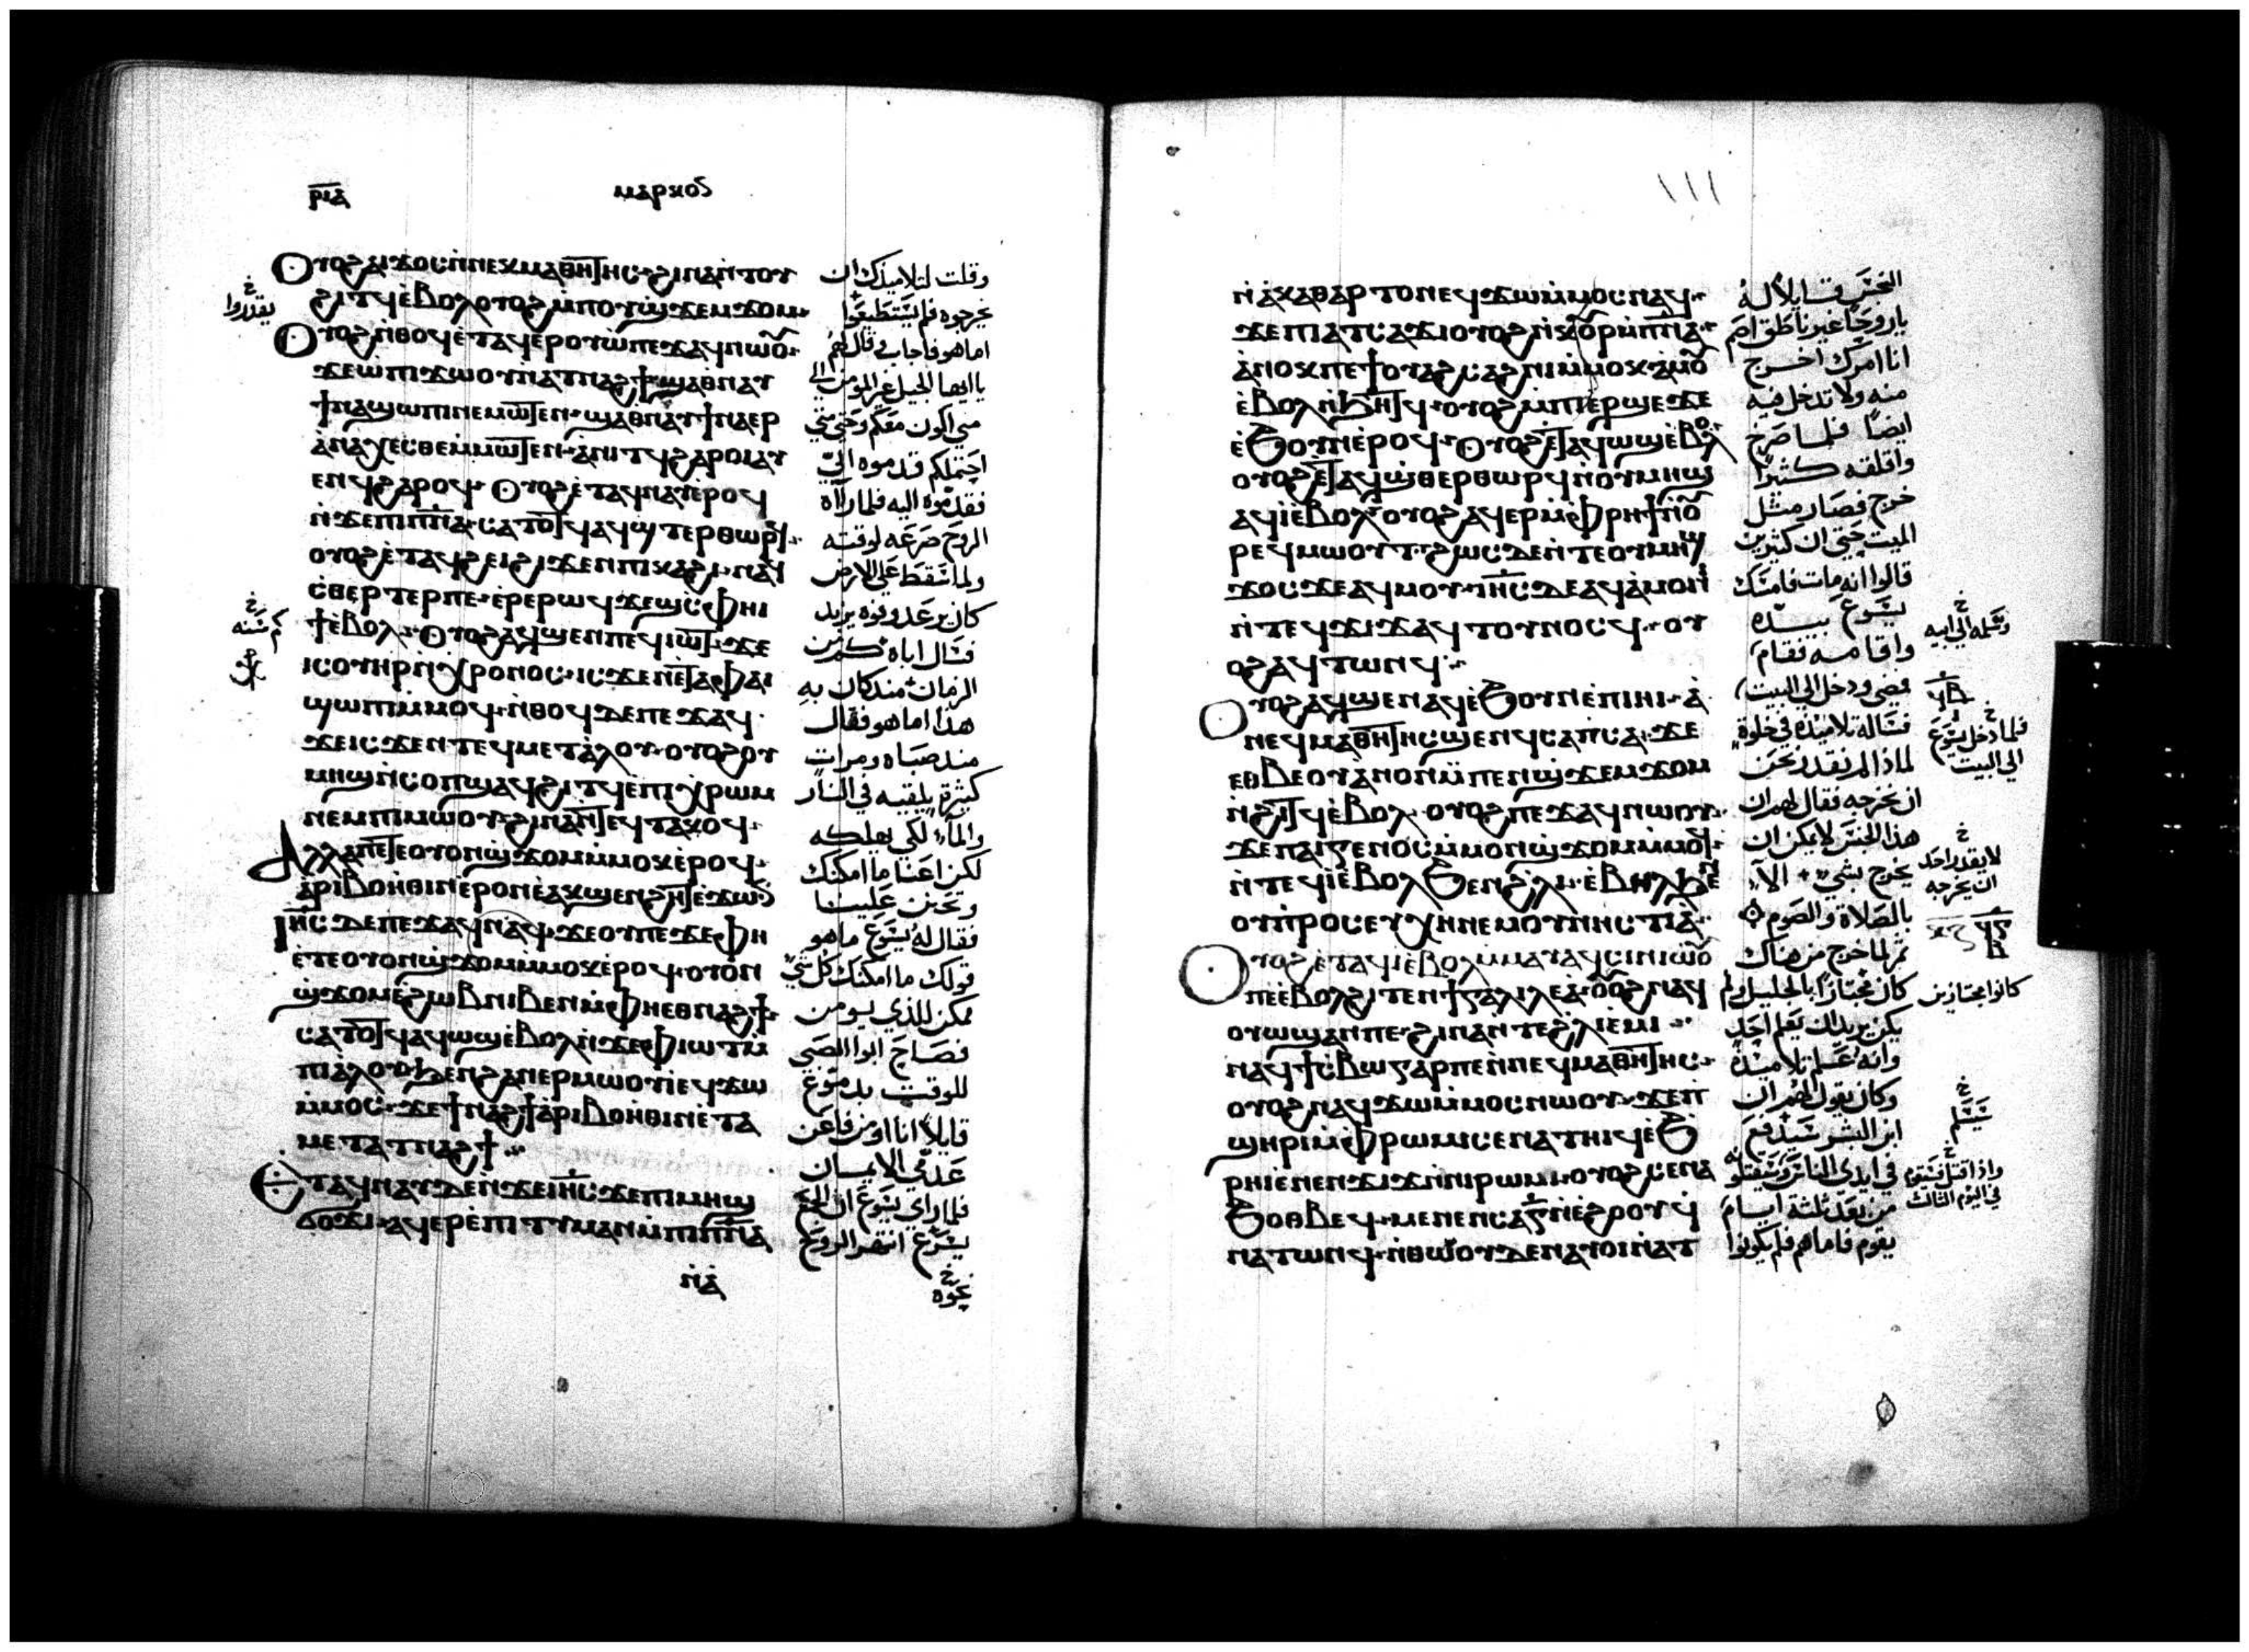 ⲣⲓⲁ ⲙⲁⲣⲕⲟⲥ
ⲟⲩⲟϩ ⲁⲓϫⲟⲥ ⲛ̀ⲛⲉⲕⲙⲁⲑⲏⲧⲏⲥ ϩⲓⲛⲁ ⲛ̀ⲧⲟⲩ
ϩⲓⲧϥ ⲉ̀ⲃⲟⲗ ⲟⲩⲟϩ ⲙ̀ⲡⲟⲩϣ̀ϫⲉⲙϫⲟⲙ
ⲟⲩⲟϩ ⲛ̀ⲑⲟϥ ⲉ̀ⲧⲁϥⲉⲣⲟⲩⲱ ⲡⲉϫⲁϥ ⲛⲱⲟⲩ
ϫⲉ ⲱ̀ ⲡⲓϫⲱⲟⲩ ⲛ̀ⲁⲧⲛⲁϩϯ ϣⲁ ⲑⲛⲁⲩ
ϯⲛⲁϣⲱⲡⲓ ⲛⲉⲙⲱⲧⲉⲛ ϣⲁ ⲑⲛⲁⲩ ϯⲛⲁⲉⲣ
ⲁ̀ⲛⲁⲭⲉⲥⲑⲉ ⲙ̀ⲙⲱⲧⲉⲛ ⲁ̀ⲛⲓⲧϥ ϩⲁⲣⲟⲓ ⲁⲩ
ⲉⲛϥ ϩⲁⲣⲟϥ ⲟⲩⲟϩ ⲉ̀ⲧⲁϥⲛⲁⲩ ⲉ̀ⲣⲟϥ
ⲛ̀ϫⲉ ⲡⲓⲡ̅ⲛ̅ⲁ̅ ⲥⲁⲧⲟⲧϥ ⲁϥϣⲧⲉⲣⲑⲱⲣϥ
ⲟⲩⲟϩ ⲉ̀ⲧⲁϥϩⲉⲓ ϩⲓϫⲉⲛ ⲡⲓⲕⲁϩⲓ ⲛⲁϥ
ⲥ̀ⲑⲉⲣⲧⲉⲣ ⲡⲉ ⲉ̀ⲣⲉ ⲣⲱϥ ϫⲉⲱ̀ⲥⲫⲏⲓ
ϯ ⲉ̀ⲃⲟⲗ ⲟⲩⲟϩ ⲁϥϣⲉⲛ ⲡⲉϥⲓⲱⲧ ϫⲉ
ⲓⲥ ⲟⲩⲏⲣ ⲛ̀ⲭⲣⲟⲛⲟⲥ ⲓⲥϫⲉⲛ ⲉ̀ⲧⲁ ⲫⲁⲓ
ϣⲱⲡⲓ ⲙ̀ⲙⲟϥ ⲛ̀ⲑⲟϥ ⲇⲉ ⲡⲉϫⲁϥ
ϫⲉ ⲓⲥϫⲉⲛ ⲧⲉϥⲙⲉⲧⲁ̀ⲗⲟⲩ ⲟⲩⲟϩ ⲟⲩ
ⲙⲏϣ ⲛ̀ⲥⲟⲡ ϣⲁϥϩⲓⲧϥ ⲉ̀ⲡⲓⲭⲣⲱⲙ
ⲛⲉⲙ ⲡⲓⲙⲱⲟⲩ ϩⲓⲛⲁ ⲛ̀ⲧⲉϥⲧⲁⲕⲟϥ
ⲁⲗⲗⲁ ⲡⲉⲧⲉ ⲟⲩⲟⲛ ϣ̀ϫⲟⲙ ⲙ̀ⲙⲟⲕ ⲉ̀ⲣⲟϥ
ⲁ̀ⲣⲓⲃⲟⲏ̀ⲑⲓⲛ ⲉ̀ⲣⲟⲛ ⲉ̀ⲁⲕϣⲉⲛϩⲏⲧ ⲉ̀ϫⲱⲛ
ⲓⲏ̅ⲥ̅ ⲇⲉ ⲡⲉϫⲁϥ ⲛⲁϥ ϫⲉ ⲟⲩ ⲡⲉ ϫⲉ ⲫⲏ
ⲉ̀ⲧⲉ ⲟⲩⲟⲛ ϣ̀ϫⲟⲙ ⲙ̀ⲙⲟⲕ ⲉ̀ⲣⲟϥ ⲟⲩⲟⲛ
ϣ̀ϫⲟⲙ ⲉ̀ϩⲱⲃ ⲛⲓⲃⲉⲛ ⲙ̀ⲫⲏ ⲉⲑⲛⲁϩϯ
ⲥⲁⲧⲟⲧϥ ⲁϥⲱϣ ⲉ̀ⲃⲟⲗ ⲛ̀ϫⲉ ⲫⲓⲱⲧ ⲙ
ⲡⲓⲁ̀ⲗⲟⲩ ϧⲉⲛ ϩⲁⲛⲉⲣⲙⲱⲟⲩⲓ ⲉϥϫⲱ
ⲙ̀ⲙⲟⲥ ϫⲉ ϯⲛⲁϩϯ ⲁ̀ⲣⲓⲃⲟⲏ̀ⲑⲓⲛ ⲉ̀ⲧⲁ
ⲙⲉⲧⲁⲧⲛⲁϩϯ
ⲉⲧⲁϥⲛⲁⲩ ⲇⲉ ⲛ̀ϫⲉ ⲓⲏ̅ⲥ̅ ϫⲉ ⲡⲓⲙⲏϣ
ϭⲟϫⲓ ⲁϥⲉⲣⲉ̀ⲡⲓⲧⲩⲙⲁⲛ ⲙ̀ⲡⲓⲡ̅ⲛ̅ⲁ̅
ⲛ̀ⲁ̀
وقلت لتلاميذك ان
يخرجوه فلم يستطيعوا
اما هو فاجاب وقال لهم
يا ايها الجيل غير المؤمن الى
متى اكون معكم وحتى متى
احتملكم قدموه اليّ
فقدموه اليه فلما رآه
الروح صرعه لوقته
ولما سقط على الارض
كان يرعد وفوه يزبد
فسال اباه كم من
الزمان منذ كان به
هذا اما هو فقال
منذ صباه ومرات
كثيرة يلقيه في النار
والماء لكي يهلكه
لكن اعنا ما امكنك
وتحنن علينا
فقال له يسوع ما هو
قولك ما امكنك كل شي
ممكن للذي يومن
فصاح ابو الصبي
للوقت بدموع
قايلا انا اومن فاعن
عدم الايمان
فلما راى يسوع ان الجمع
يسرع انتهر الروح
يقدروا
كم سنه
نحوه
١١١
ⲛ̀ⲁ̀ⲕⲁⲑⲁⲣⲧⲟⲛ ⲉϥϫⲱ ⲙ̀ⲙⲟⲥ ⲛⲁϥ
ϫⲉ ⲡⲓⲁⲧⲥⲁϫⲓ ⲟⲩⲟϩ ⲛ̀ⲕⲟⲩⲣ ⲙ̀ⲡ̅ⲛ̅ⲁ̅
ⲁ̀ⲛⲟⲕ ⲡⲉϯⲟⲩⲁϩⲥⲁϩⲛⲓ ⲙ̀ⲙⲟⲕ ⲁ̀ⲙⲟⲩ
ⲉ̀ⲃⲟⲗ ⲛ̀ϧⲏⲧϥ ⲟⲩⲟϩ ⲙ̀ⲡⲉⲣϣⲉ ϫⲉ
ⲉ̀ϧⲟⲩⲛ ⲉ̀ⲣⲟϥ ⲟⲩⲟϩ ⲉ̀ⲧⲁϥⲱϣ ⲉ̀ⲃⲟⲗ
ⲟⲩⲟϩ ⲉ̀ⲧⲁϥϣ̀ⲑⲉⲣⲑⲱⲣϥ ⲛ̀ⲟⲩⲙⲏϣ
ⲁϥⲓ̀ ⲉ̀ⲃⲟⲗ ⲟⲩⲟϩ ⲁϥⲉⲣ ⲙ̀ⲫⲣⲏϯ ⲛ̀ⲟⲩ
ⲣⲉϥⲙⲱⲟⲩⲧ ϩⲱⲥⲇⲉ ⲛ̀ⲧⲉ ⲟⲩⲙⲏϣ
ϫⲟⲥ ϫⲉ ⲁϥⲙⲟⲩ ⲓⲏ̅ⲥ̅ ⲇⲉ ⲁϥⲁ̀ⲙⲟⲛⲓ
ⲛ̀ⲧⲉϥϫⲓϫ ⲁϥⲧⲟⲩⲛⲟⲥϥ ⲟⲩ
ⲟϩ ⲁϥⲧⲱⲛϥ
ⲟⲩⲟϩ ⲁϥϣⲉⲛⲁϥ ⲉ̀ϧⲟⲩⲛ ⲉ̀ⲡⲓⲏⲓ ⲁ̀
ⲛⲉϥⲙⲁⲑⲏⲧⲏⲥ ϣⲉⲛϥ ⲥⲁⲡⲥⲁ ϫⲉ
ⲉⲑⲃⲉ ⲟⲩ ⲁ̀ⲛⲟⲛ ⲙ̀ⲡⲉⲛϣ̀ϫⲉⲙϫⲟⲙ
ⲛ̀ϩⲓⲧϥ ⲉ̀ⲃⲟⲗ ⲟⲩⲟϩ ⲡⲉϫⲁϥ ⲛⲱⲟⲩ
ϫⲉ ⲡⲁⲓⲅⲉⲛⲟⲥ ⲙ̀ⲙⲟⲛ ϣ̀ϫⲟⲙ ⲙ̀ⲙⲟϥ
ⲛ̀ⲧⲉϥⲓ̀ ⲉ̀ⲃⲟⲗ ϧⲉⲛ ϩ̀ⲗⲓ ⲉ̀ⲃⲏⲗ ϧⲉⲛ
ⲟⲩⲡⲣⲟⲥⲉⲩⲭⲏ ⲛⲉⲙ ⲟⲩⲛⲏⲥⲧⲓⲁ
ⲟⲩⲟϩ ⲉ̀ⲧⲁϥⲓ̀ ⲉ̀ⲃⲟⲗ ⲙ̀ⲙⲁⲩ ⲁϥⲥⲓⲛⲓⲱⲟⲩ
ⲡⲉ ⲉ̀ⲃⲟⲗ ϩⲓⲧⲉⲛ ϯⲅⲁⲗⲓⲗⲉⲁ̀ ⲟⲩⲟϩ ⲛⲁϥ
ⲟⲩⲱϣ ⲁⲛ ⲡⲉ ϩⲓⲛⲁ ⲛ̀ⲧⲉ ϩ̀ⲗⲓ ⲉ̀ⲙⲓ
ⲛⲁϥϯⲥ̀ⲃⲱ ⲅⲁⲣ ⲡⲉ ⲛ̀ⲛⲉϥⲙⲁⲑⲏⲧⲏⲥ
ⲟⲩⲟϩ ⲛⲁϥϫⲱ ⲙ̀ⲙⲟⲥ ⲛⲱⲟⲩ ϫⲉ ⲡ
ϣⲏⲣⲓ ⲙ̀ⲫⲣⲱⲙⲓ ⲥⲉⲛⲁⲧⲏⲓϥ ⲉ̀ϧ
ⲣⲏⲓ ⲉ̀ⲛⲉⲛϫⲓϫ ⲛ̀ⲛⲓⲣⲱⲙⲓ ⲟⲩⲟϩ ⲥⲉⲛⲁ
ϧⲟⲑⲃⲉϥ ⲙⲉⲛⲉⲛⲥⲁ ⲅ̅ ⲛ̀ⲉ̀ϩⲟⲟⲩ ϥ
ⲛⲁⲧⲱⲛϥ ⲛ̀ⲑⲱⲟⲩ ⲇⲉ ⲛⲁⲩⲟⲓ ⲛ̀ⲁⲧ
النجس قايلا له
يا روحا غير ناطق اصم
انا امرك اخرج
منه ولا تدخل فيه
ايضا فلما صرخ
واقلقه كثيرا
خرج فصار مثل
الميت حتى ان كثيرين
قالوا انه مات فامسك
يسوع بيده
واقامه فقام
فمضى ودخل الى البيت
فساله تلاميذه في خلوة
لماذا لم نقدر نحن
ان نخرجه فقال لهم ان
هذا الجنس لا يمكن ان
يخرج بشي الا
بالصلاة والصوم
ثم لما خرج من هناك
كان مجتازا بالجليل ولم
يكن يريد ان يعلم احد
وانه علم تلاميذه
وكان يقول لهم ان
ابن البشر سيدفع
في ايدي الناس وسيقتلونه
من بعد ثلثة ايام
يقوم فاما هم فلم يكونوا
وسلمه الى ابيه
فلما دخل يسوع
الى البيت
لا يقدر احد
ان يخرجه
كانوا مجتازين
سيسلم
واذا قتل فسيقوم
في اليوم الثالث